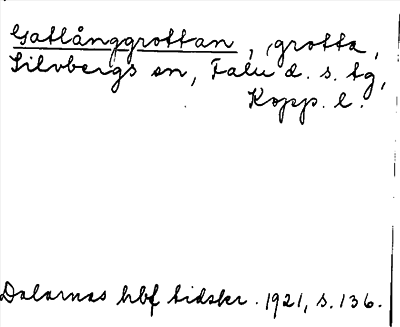 Gatlånggrottan, grotta,
Silvbergs sn, Falu d. s. tg,
Kopp. l.
Dalarnas hbf tidskr. 1921, s. 136.